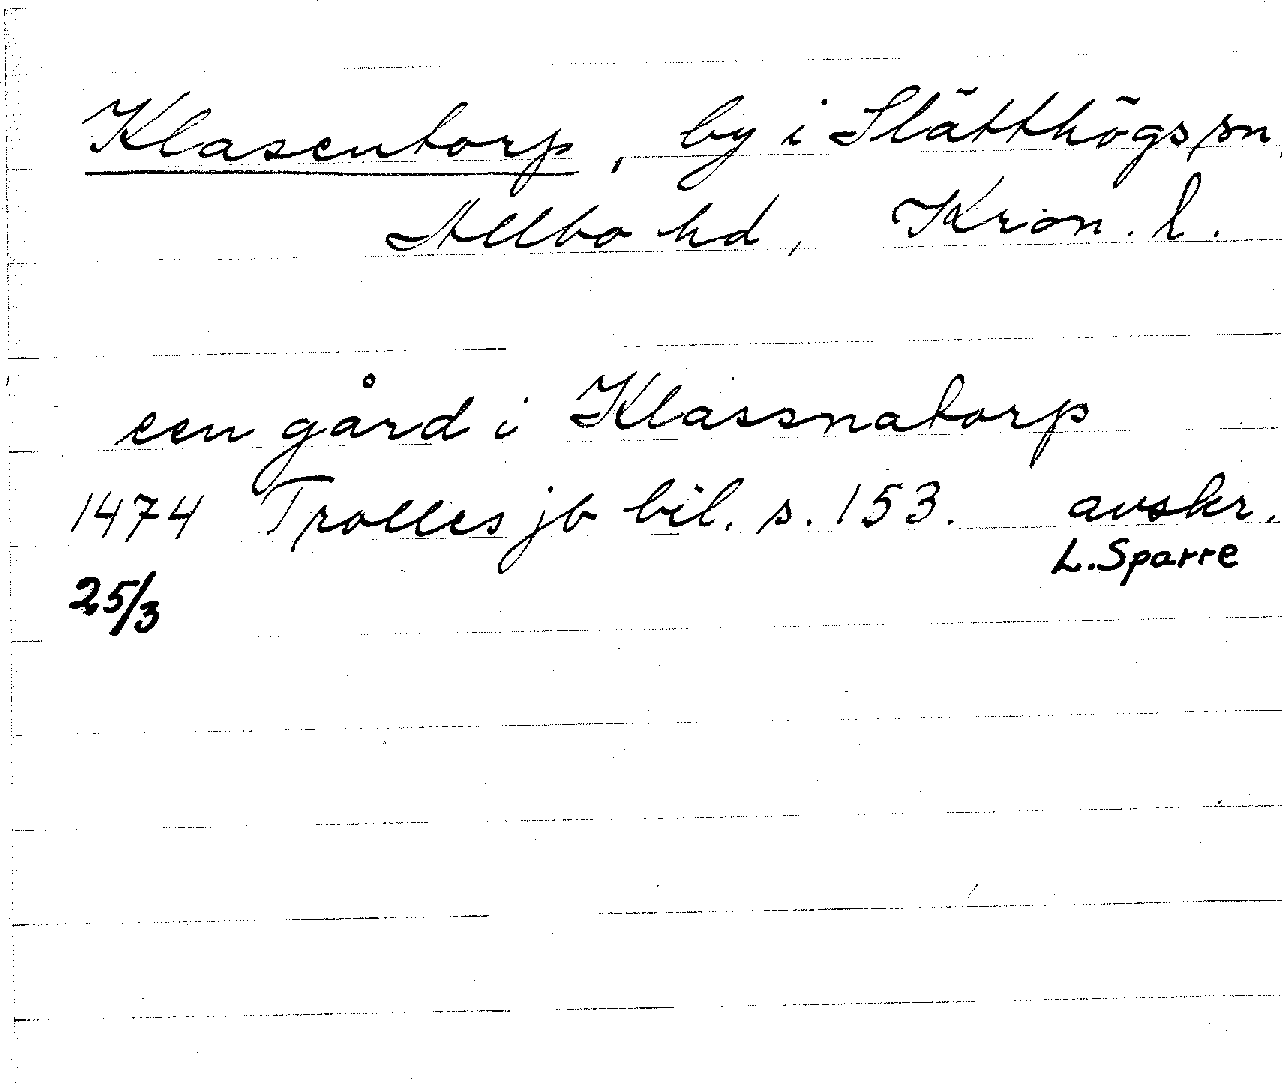 Klasentorp, by i Slätthögs sn,
Allbo hd, Kron. l.
een gård i Klassnatorp
1474 Trolles jb bil. s. 153. avskr.
25/3 L. Sparre